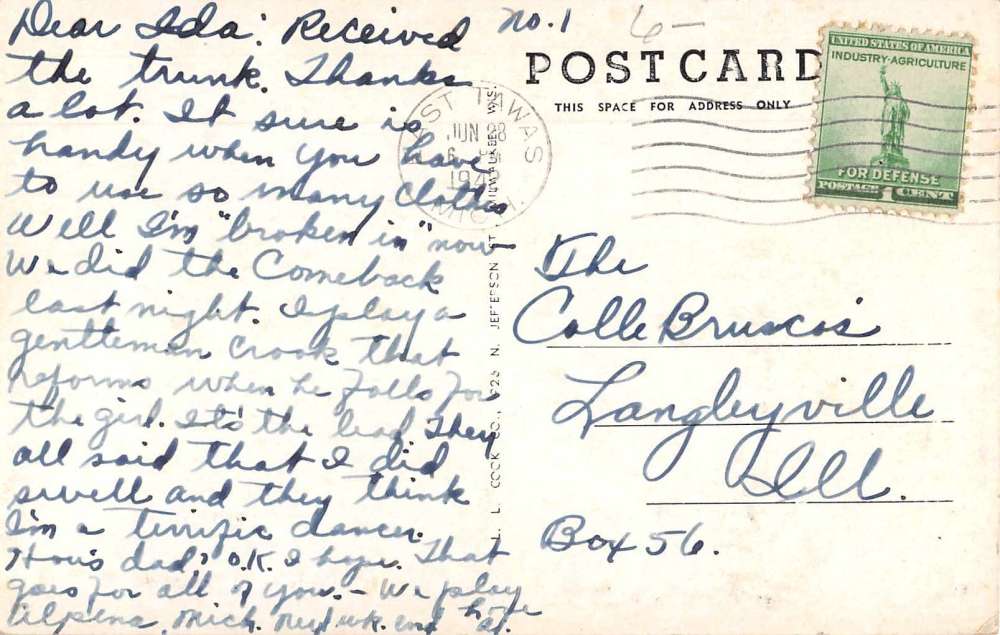 Dear Ida: Received
the trunk. Thanks
a lot. It sure is
handy when you have
to use so many clothes
Well I'm "broken in" now
We did the Comeback
last night. I play a
gentleman crook that
reforms when he falls for
the girl. It's the lead. They
all said that I did
swell and they think
I'm a terrific dancer.
How's dad? O.K. I hope. That
goes for all of you. - We play
Alpena, Mich. next wk. end
no. 1
6-
POST CARD
THIS SPACE FOR ADDRESS ONLY
UNITED STATES OF AMERICA
INDUSTRY·AGRICULTURE
FOR DEFENSE
POSTAGE 1 CENT
TAWAS
JUN 28
MICH.
L. L. COOK CO., N. JEFFERSON ST., MILWAUKEE, WIS.
The
Calle Bruscos'
Langleyville
Ill.
Box 56.